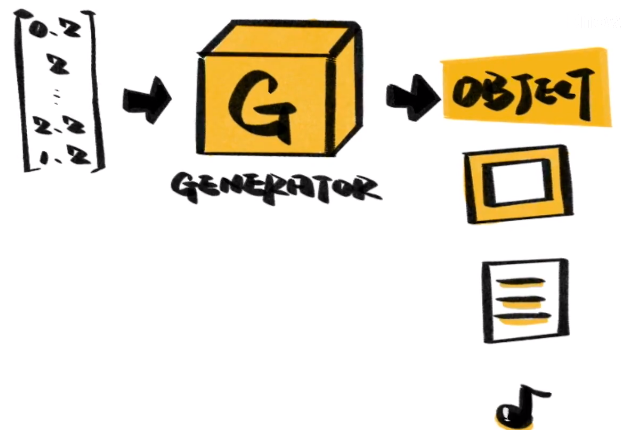 0.2
2
⋮
2.2
1.2
G
GENERATOR
OBJECT